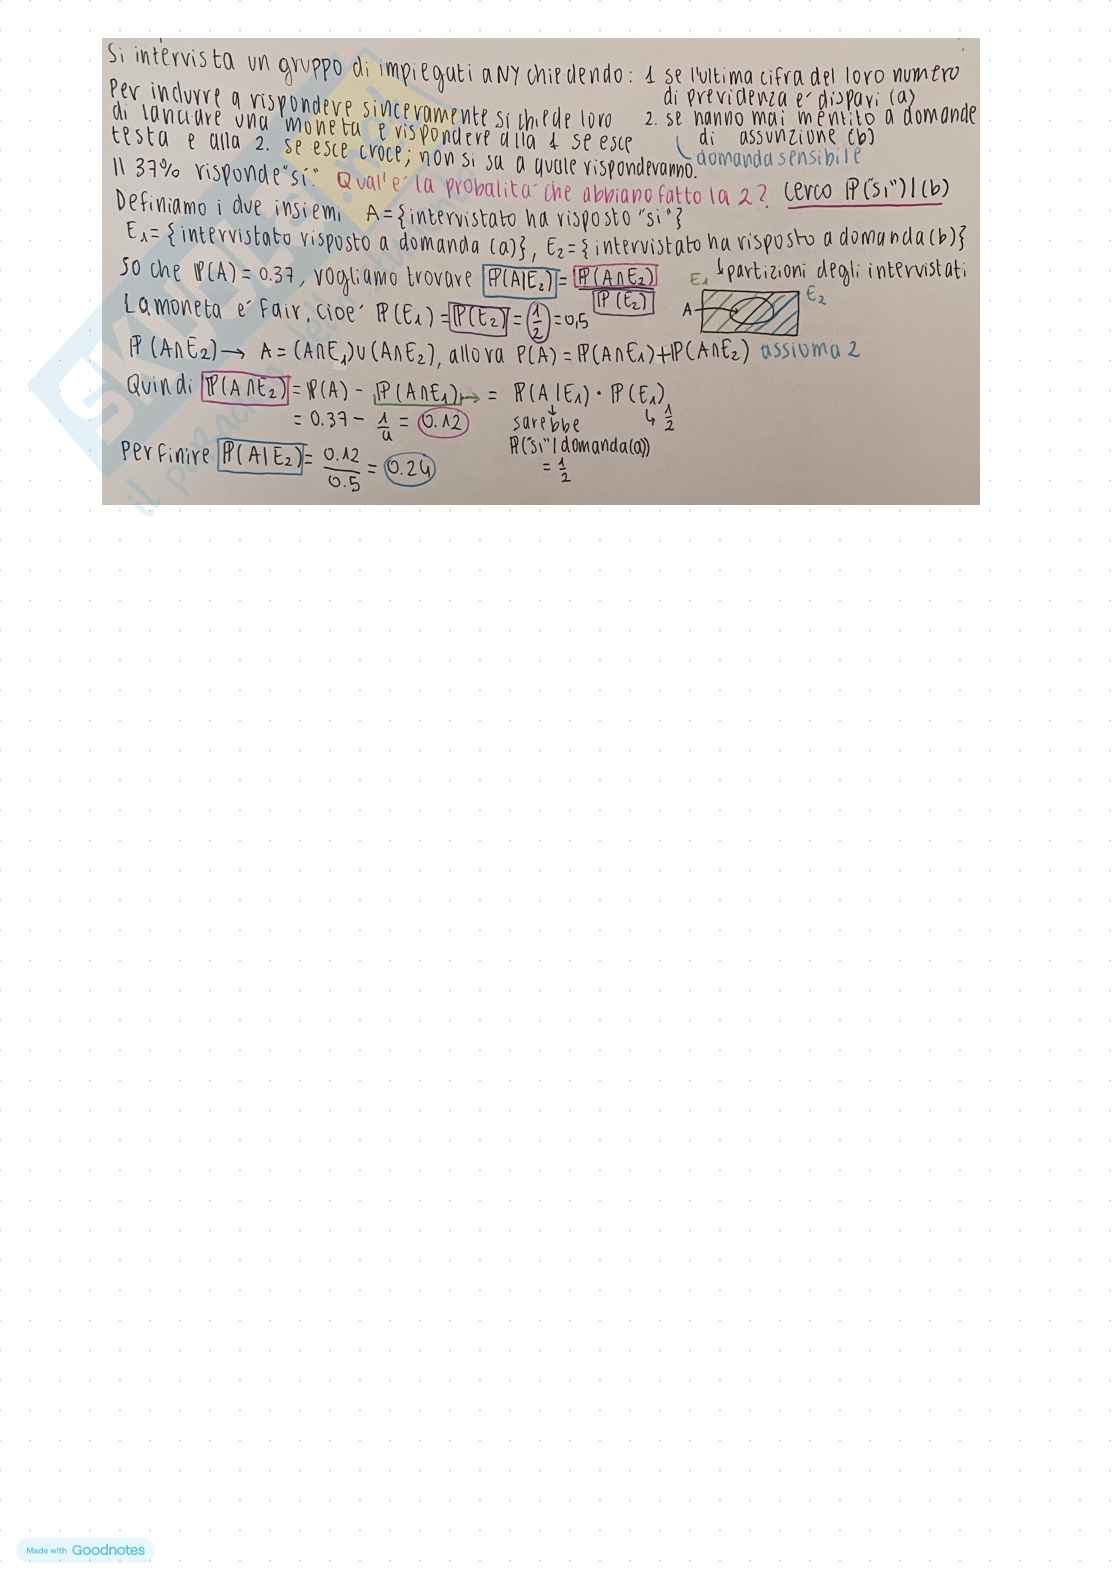 Si intervista un gruppo di impiegati a NY chiedendo: 1 se l'ultima cifra del loro numero
di previdenza é dispari (a)
Per indurre a rispondere sinceramente si chiede loro 2. se hanno mai mentito a domande
di lanciare una moneta e rispondere alla 1 se esce di assunzione (b)
testa e alla 2. se esce croce; non si sa a quale rispondevanno. domanda sensibile
Il 37% risponde "si". Qual'é la probalitá che abbiano fatto la 2? cerco P("si")|(b)
Definiamo i due insiemi A={intervistato ha risposto "si"}
E1={intervistato risposto a domanda (a)}, E2={intervistato ha risposto a domanda(b)}
So che P(A)=0.37, vogliamo trovare P(A|E2)=P(A∩E2)/P(E2) E1 ↳partizioni degli intervistati
A E2
La moneta é fair, cioé P(E1)=P(E2)=1/2=0,5
P(A∩E2)→ A=(A∩E1)∪(A∩E2), allora P(A)=P(A∩E1)+P(A∩E2) assioma 2
Quindi P(A∩E2)=P(A)-P(A∩E1)→ = P(A|E1)·P(E1)
= 0.37-1/4=0.12 sarebbe ↳1/2
P("si"|domanda(a))
=1/2
Per finire P(A|E2)=0.12/0.5=0.24
Made with Goodnotes